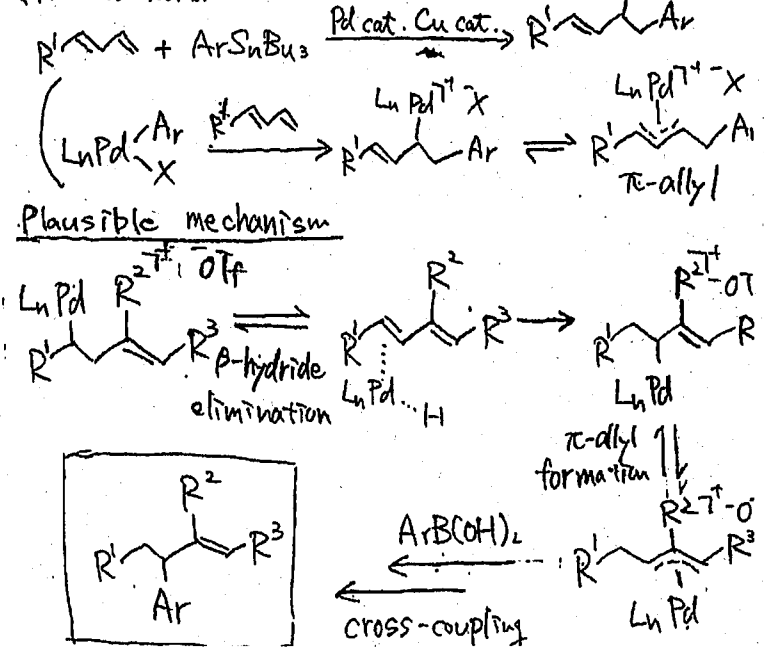 R¹ + ArSnBu₃ Pd cat. Cu cat. R¹ Ar
LnPd Ar X R¹ LnPd X R¹ Ar LnPd X R¹
π-allyl
Plausible mechanism
LnPd R² ⁻OTf R¹ R³
β-hydride
elimination
R² R¹ R³ LnPd H
R² R¹ R LnPd
π-allyl
formation
R² R¹ R³ LnPd
ArB(OH)₂
cross-coupling
R² R¹ R³ Ar